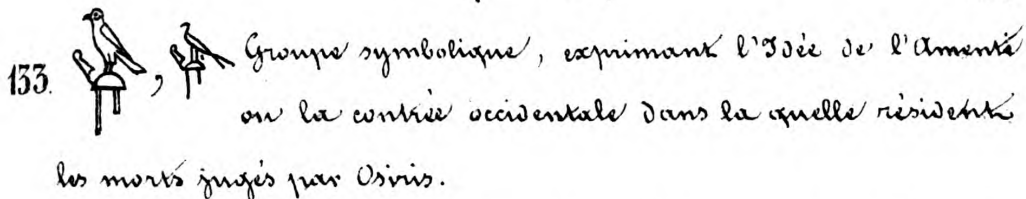 133. 𓅃, Groupe symbolique, exprimant l'Idée de l'Amenté
ou la contrée occidentale dans la quelle résident
les morts jugés par Osiris.